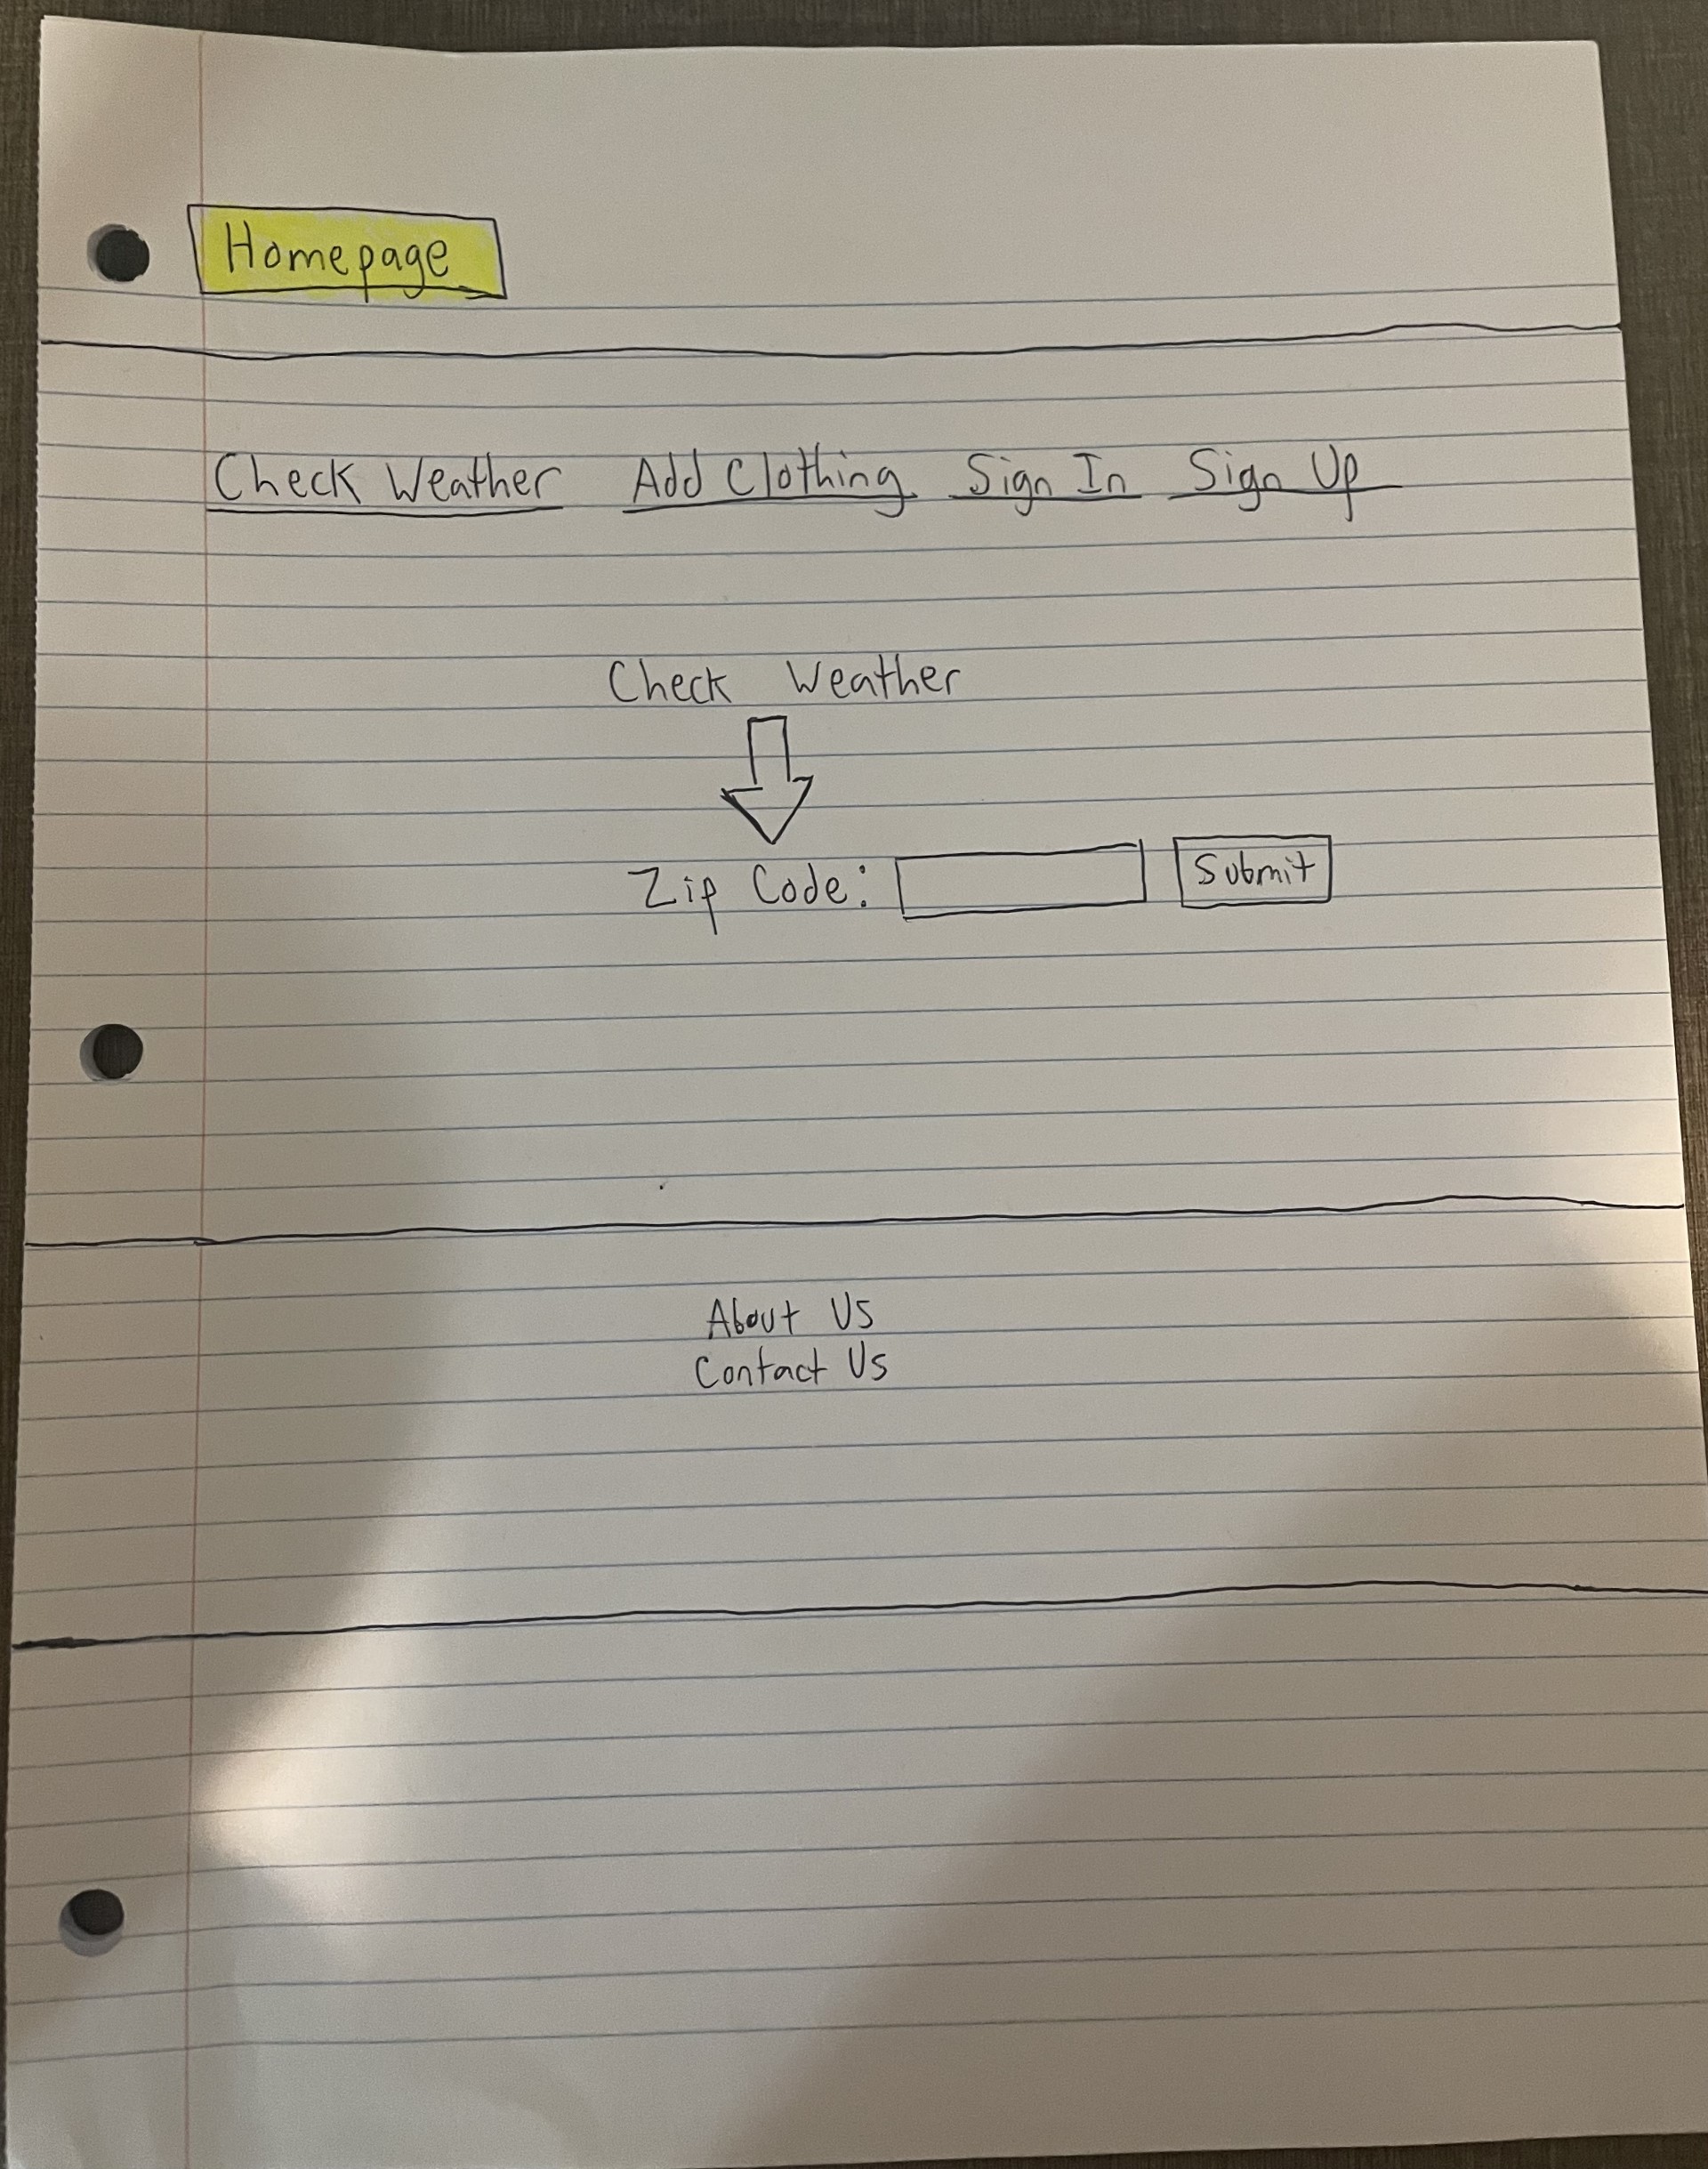 Homepage
Check Weather Add Clothing Sign In Sign Up
Check Weather
Zip Code: Submit
About Us
Contact Us